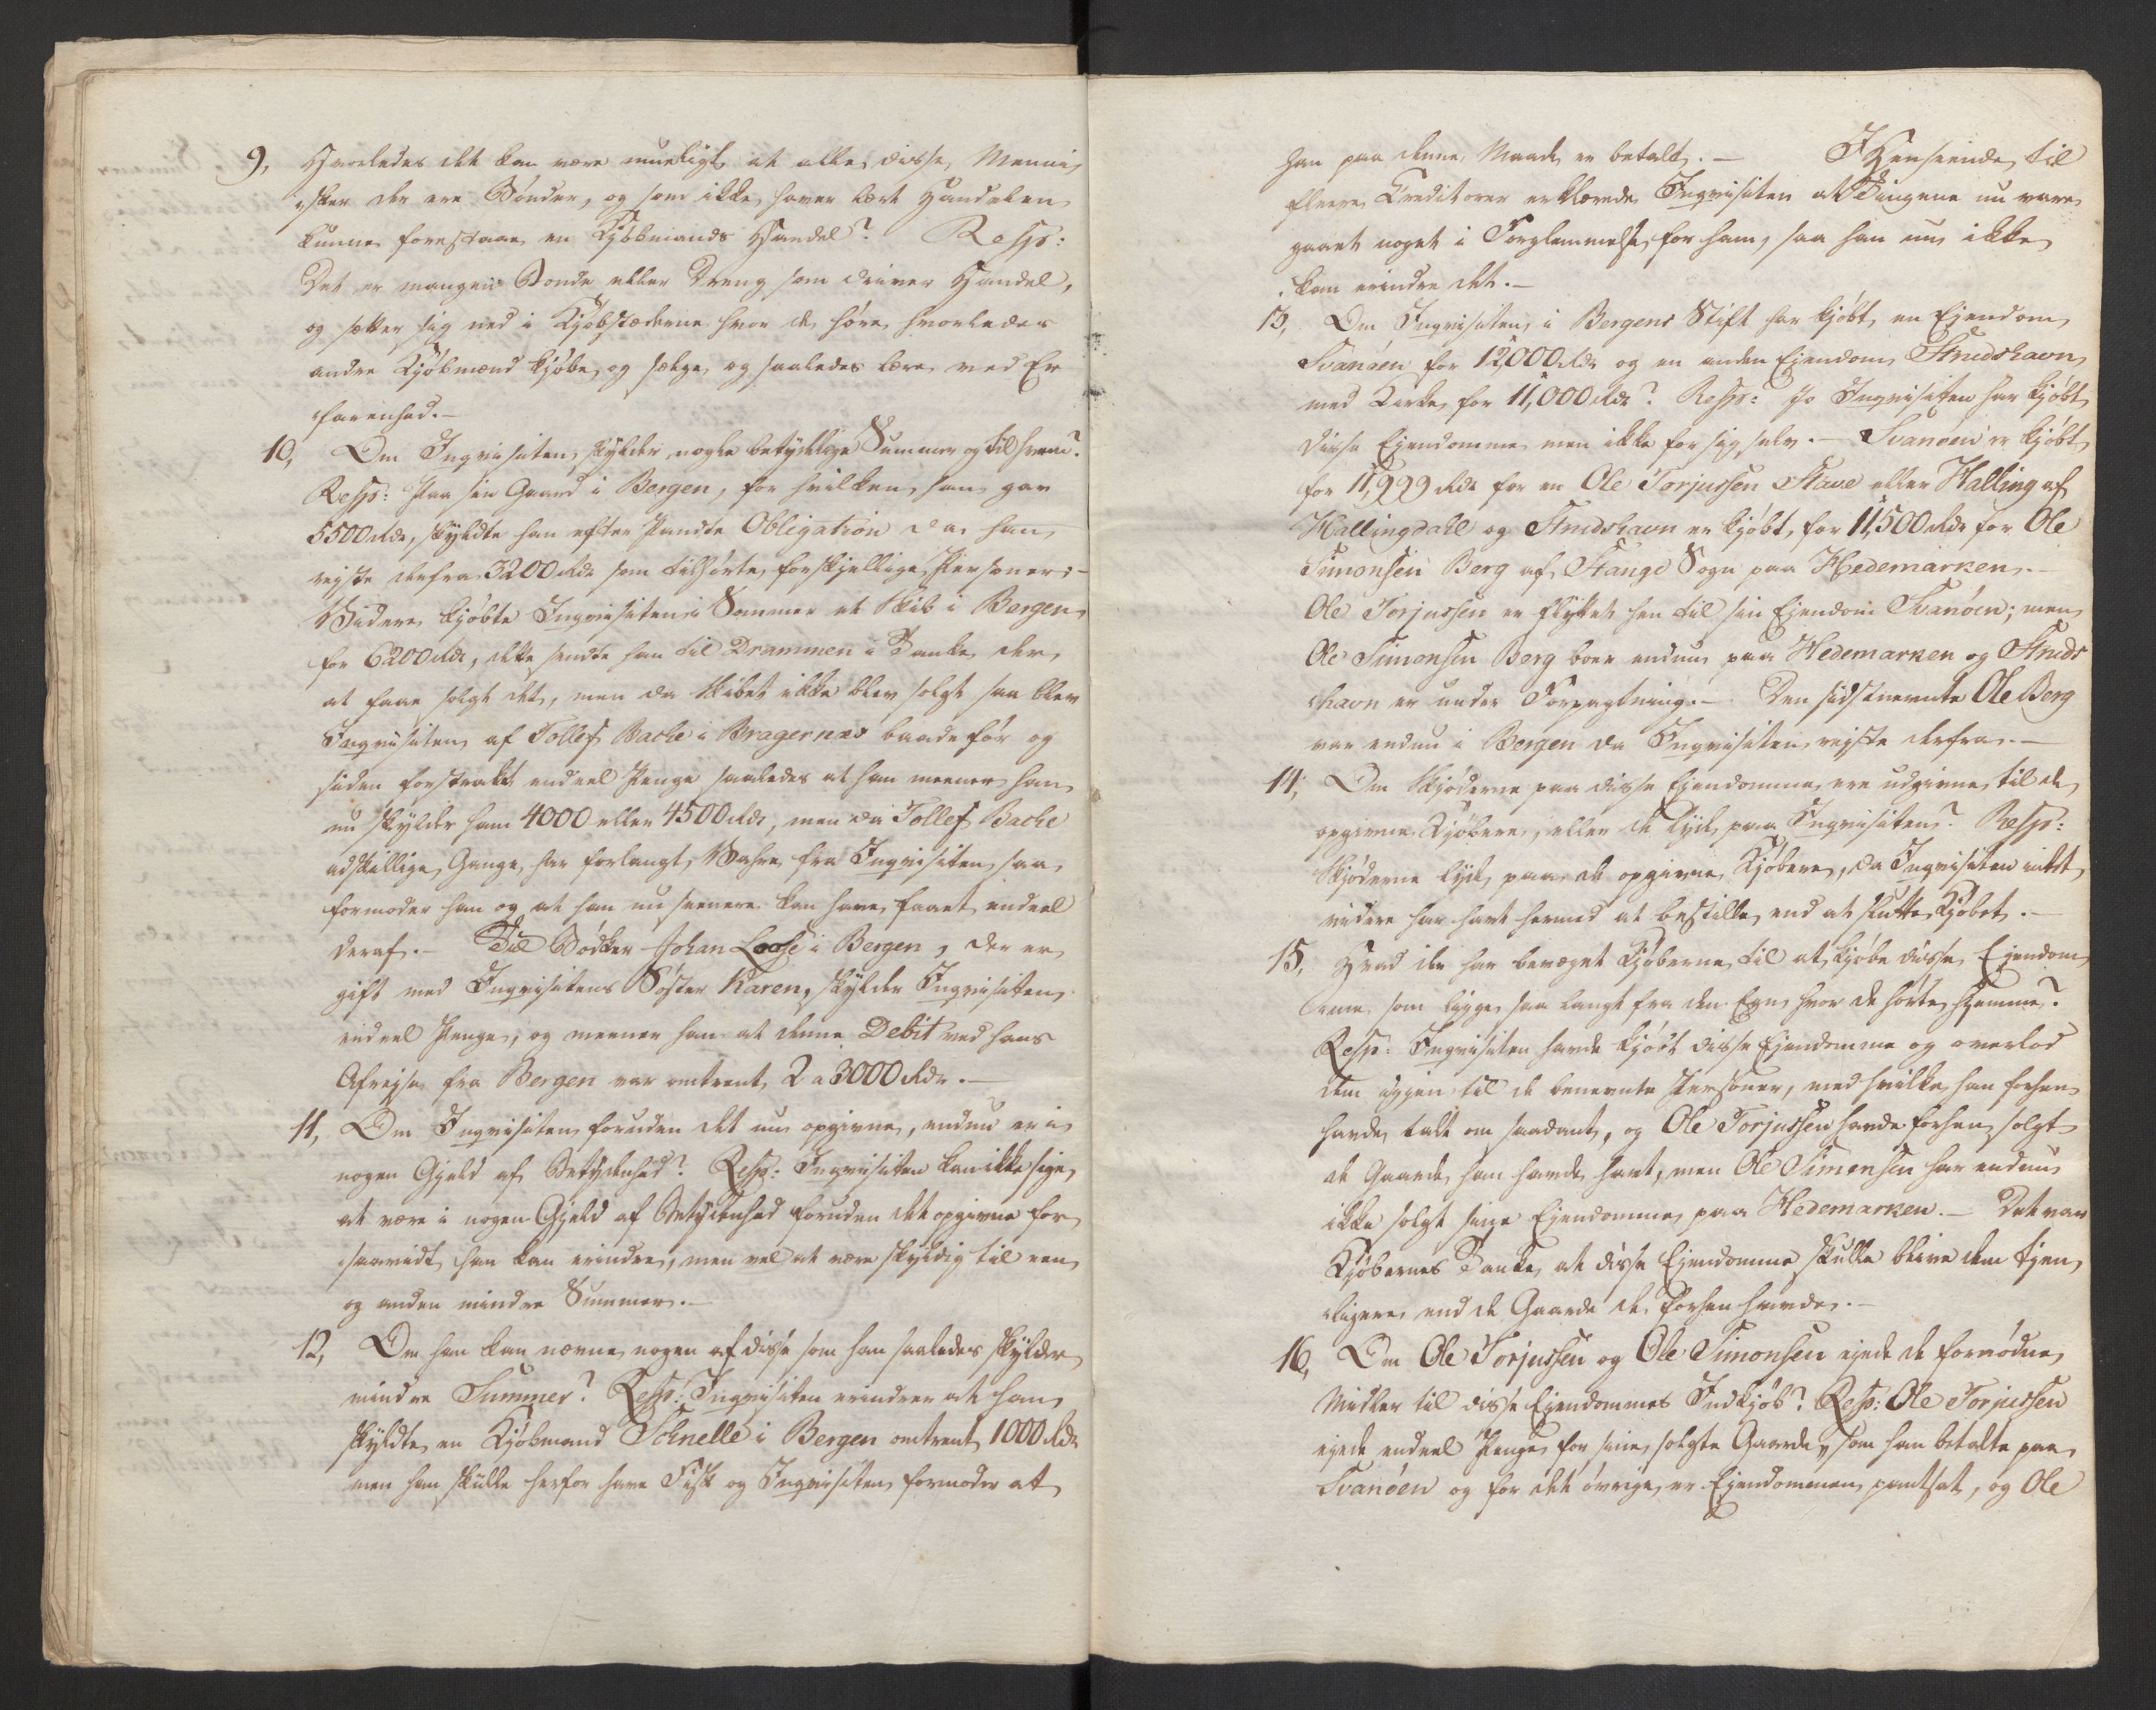 9, Hvorledes det kan være mueligt at alle disse Menni,
,sker der ere Bönder, og som ikke haver lært Handelen
kunne forestaae en Kjöbmands Handel? Resp:
Det er mangen Bonde eller Dreng som driver Handel,
og sætter sig ned i Kjöbstæderne hvor de höre hvorledes
andre Kjöbmænd kjöbe og sælge og saaledes lære ved Er
,farenhed.—
10, Om Inqvisiten skylder nogle betydelige Summer og til hvem?
Resp: Paa sin Gaard i Bergen, for hvilken han gav
5500 Rdr, skyldte han efter Pandte Obligation da han
rejste derfra 3200 Rdr som tilhörte forskjellige Personer;—
Videre kjöbte Inqvisiten i Sommer et Skib i Bergen
for 6200 Rdr, dette sendte han til Drammen i Tanke der
at faae solgt det, men da Skibet ikke blev solgt saa blev
Inqvisiten af Tollef Bache i Bragernæs baade för og
siden forstrakt endeel Penge saaledes at han meener han
nu skylder ham 4000 eller 4500 Rdr, men da Tollef Bache
adskillige Gange har forlangt Vahre fra Inqvisiten saa
formoder han og at han nu seenere kan have faaet endeel
deraf.— Til Bödker Johan Loose i Bergen, der er
gift med Inqvisitens Söster Karen, skylder Inqvisiten
endeel Penge, og meener han at denne Debit ved hans
Afrejse fra Bergen var omtrent 2 a 3000 Rdr.—
11, Om Inqvisiten foruden det nu opgivne, endnu er i
nogen Gjeld af Betydenhed? Resp: Inqvisiten kan ikke sige
at være i nogen Gjeld af Betydenhed foruden det opgivne for
saavidt han kan erindre, men vel at være skyldig til een
og anden mindre Summer.—
12, Om han kan nævne nogen af disse som han saaledes skylder
mindre Summer? Resp: Inqvisiten erindrer at han
skyldte en Kjöbmand Schnelle i Bergen omtrent 1000 Rdr
men han skulle herfor have Fisk og Inqvisiten formoder at
han paa denne Maade er betalt.— I Henseende til
fleere Creditorer erklærede Inqvisiten at Tingene nu vare
gaaet noget i Forglemmelse for ham, saa han nu ikke
kan erindre det.—
13, Om Inqvisiten i Bergens Stift har kjöbt en Ejendom
Svanöen for 12,000 Rdr og en anden Ejendom Strudshavn
med Kirke for 11,000 Rdr? Resp: Jo Inqvisiten har kjöbt
disse Ejendomme men ikke for sig selv.— Svanöen er kjöbt
for 11,999 Rdr for en Ole Torjussen Stave eller Halling af
Hallingdahl og Strudshavn er kjöbt for 11,500 Rdr for Ole
Simonsen Berg af Stange Sogn paa Hedemarken.—
Ole Torjussen er flyttet hen til sin Ejendom Svanöen; men
Ole Simonsen Berg boer endnu paa Hedemarken og Struds
,havn er under Forpagtning.— Den sidstnevnte Ole Berg
var endnu i Bergen da Inqvisiten rejste derfra.—
14, Om Skjöderne paa disse Ejendomme ere udgivne til de
opgivne Kjöbere, eller de lyde paa Inqvisiten? Resp:
Skjöderne lyde paa de opgivne Kjöbere, da Inqvisiten intet
videre har havt hermed at bestille end at slutte Kjöbet.—
15, Hvad der har bevæget Kjöberne til at kjöbe disse Ejendom
,me som ligge saa langt fra den Egn hvor de hörte hjemme?
Resp: Inqvisiten havde kjöbt disse Ejendomme og overlod
dem iggjen til de benevnte Personer, med hvilke han forhen
havde talt om saadant, og Ole Torjussen havde forhen solgt
de Gaarde han havde havt, men Ole Simonsen har endnu
ikke solgt sine Ejendomme paa Hedemarken.— Det var
Kjöbernes Tanke, at disse Ejendomme skulle blive dem tjen
,ligere end de Gaarde de forhen havde.—
16, Om Ole Torjussen og Ole Simonsen ejede de fornödne
Midler til disse Ejendommes Indkjöb? Resp: Ole Torjussen
ejede endeel Penge for sine solgte Gaarde, som han betalte paa
Svanöen og for det övrige er Ejendommen pantsat, og Ole